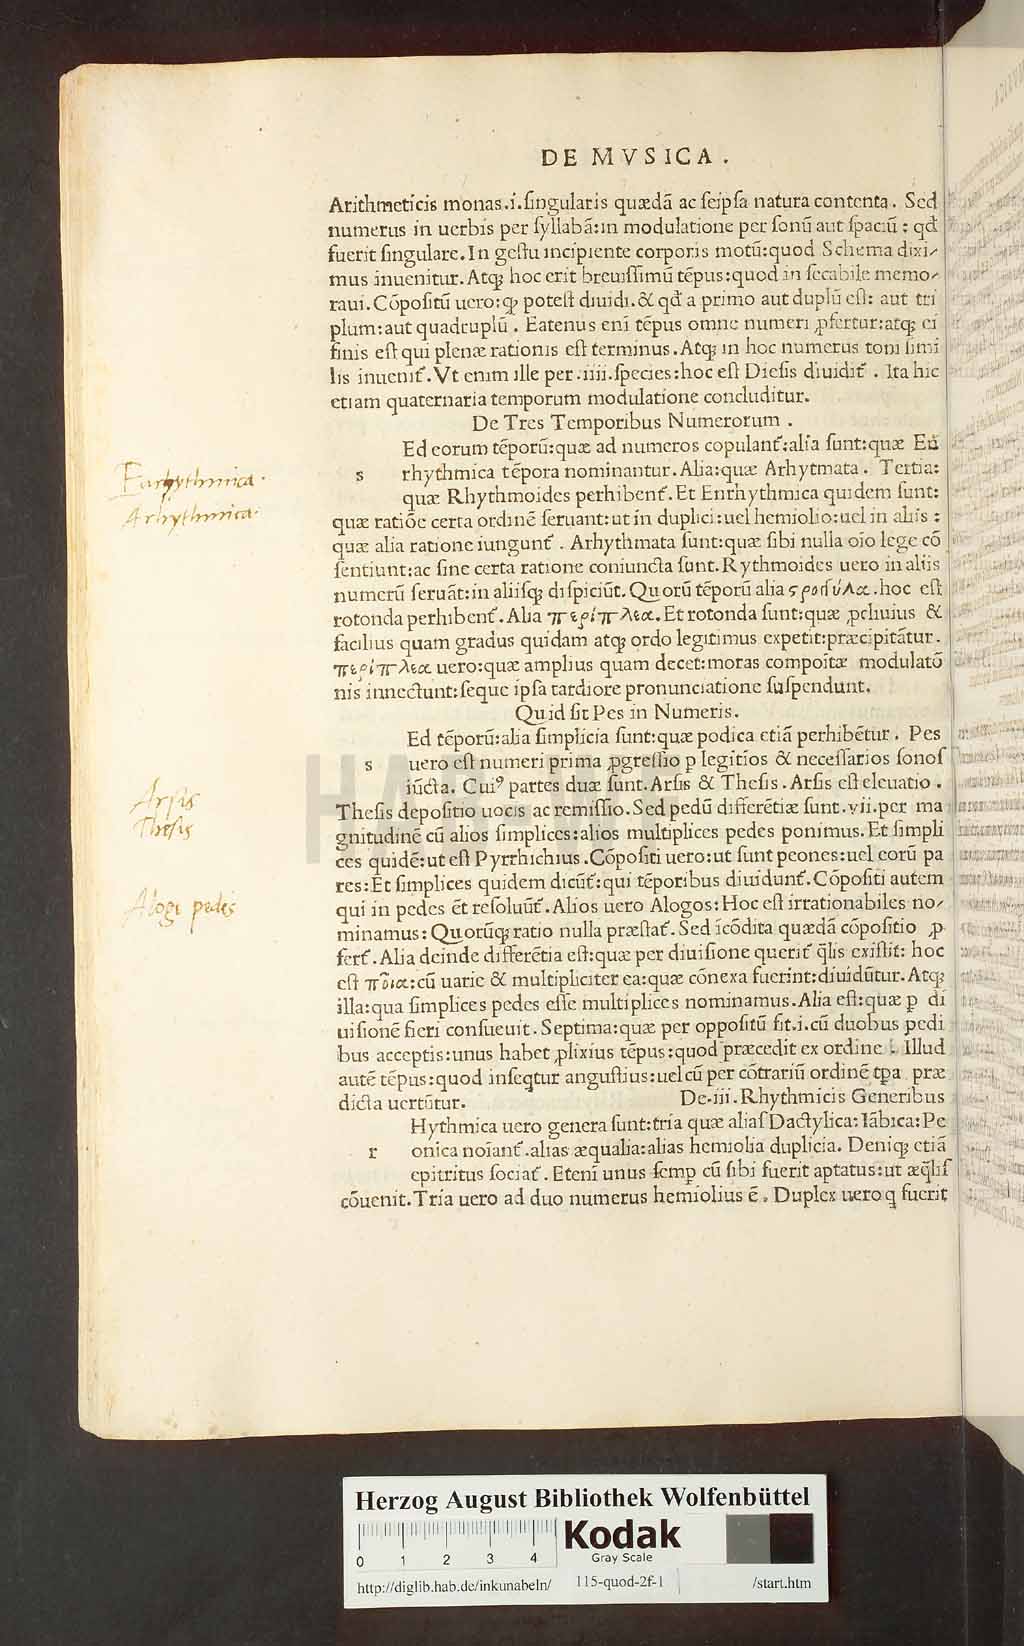 DE MVSICA .
Arithmeticis monas.i.ſingularis quædā ac ſeipſa natura contenta. Sed
numerus in uerbis per ſyllabā:in modulatione per ſonū aut ſpaciū : qđ
fuerit ſingulare. In geſtu incipiente corporis motū:quod Schema dixi-
mus inuenitur. Atq; hoc erit breuiſſimū tēpus:quod in ſecabile memo-
raui. Cōpoſitū uero: ꝙ poteſt diuidi. & qđ a primo aut duplū eſt: aut tri
plum: aut quadruplū . Eatenus enī tēpus omne numeri ꝓfertur:atq; ei
finis eſt qui plenæ rationis eſt terminus. Atq; in hoc numerus toni ſimi
lis inuenit̄. Vt enim ille per .iiii. ſpecies: hoc eſt Dieſis diuidit̄ . Ita hic
etiam quaternaria temporum modulatione concluditur.
De Tres Temporibus Numerorum .
Ed eorum tēporū:quæ ad numeros copulant̄:alia ſunt:quæ Eū
s rhythmica tēpora nominantur. Alia:quæ Arhytmata . Tertia:
Eurhythmica .
quæ Rhythmoides perhibent̄. Et Enrhythmica quidem ſunt:
Arhythmica .
quæ ratiōe certa ordinē ſeruant:ut in duplici:uel hemiolio:uel in aliis :
quæ alia ratione iungunt̄ . Arhythmata ſunt:quæ ſibi nulla oīo lege cō
ſentiunt:ac ſine certa ratione coniuncta ſunt. Rythmoides uero in aliis
numerū ſeruāt:in aliiſq; diſpiciūt. Quorū tēporū alia ςρογγύλα .hoc eſt
rotonda perhibent̄. Alia περίπλεα. Et rotonda ſunt:quæ ꝓcliuius &
facilius quam gradus quidam atq; ordo legitimus expetit:præcipitātur .
περίπλεα uero:quæ amplius quam decet:moras compoitæ modulatō
nis innectunt: ſeque ipſa tardiore pronunciatione ſuſpendunt.
Quid ſit Pes in Numeris.
Ed tēporū:alia ſimplicia ſunt:quæ podica etiā perhibētur . Pes
s uero eſt numeri prima ꝓgreſſio ꝑ legitios & neceſſarios ſonoſ
iūcta. Cui⁹ partes duæ ſunt. Arſis & Theſis . Arſis eſt eleuatio .
Arsis
Thesis
Theſis depoſitio uocis ac remiſſio. Sed pedū differētiæ ſunt.vii.per ma
gnitudinē cū alios ſimplices:alios multiplices pedes ponimus. Et ſimpli
ces quidē:ut eſt Pyrrhichius . Cōpoſiti uero:ut ſunt peones:uel eorū pa
res: Et ſimplices quidem dicūt̄:qui tēporibus diuidunt̄. Cōpoſiti autem
Alogi pedes
qui in pedes ēt reſoluūt̄. Alios uero Alogos: Hoc eſt irrationabiles no-
minamus: Quorūq; ratio nulla præſtat̄. Sed īcōdita quædā cōpoſitio ꝓ
fert̄. Alia deinde differētia eſt:quæ per diuiſione querit̄ q̄lis exiſtit: hoc
eſt ποῖα:cū uarie & multipliciter ea:quæ cōnexa fuerint:diuidūtur. Atq;
illa:qua ſimplices pedes eſſe multiplices nominamus. Alia eſt:quæ ꝑ di
uiſionē fieri conſueuit . Septima:quæ per oppoſitū ſit.i.cū duobus pedi
bus acceptis:unus habet ꝓlixius tēpus:quod præcedit ex ordine : Illud
autē tēpus:quod inſeqtur anguſtius:uel cū per cōtrariū ordinē tꝑa præ
dicta uertūtur. De.iii. Rhythmicis Generibus
Hythmica uero genera ſunt:tria quæ aliaſ Dactylica: Iābica: Pe
r onica noīant̄ .alias æqualia:alias hemiolia duplicia. Deniq; etiā
epitritus ſociat̄ . Etenī unus ſemꝑ cū ſibi fuerit aptatus:ut æq̄liſ
cōuenit. Tria uero ad duo numerus hemiolius ē . Duplex uero q̨ fuerit
Herzog August Bibliothek Wolfenbüttel
0 1 2 3 4
Kodak
Gray Scale
http://diglib.hab.de/inkunabeln/ 115-quod-2f-1 /start.htm